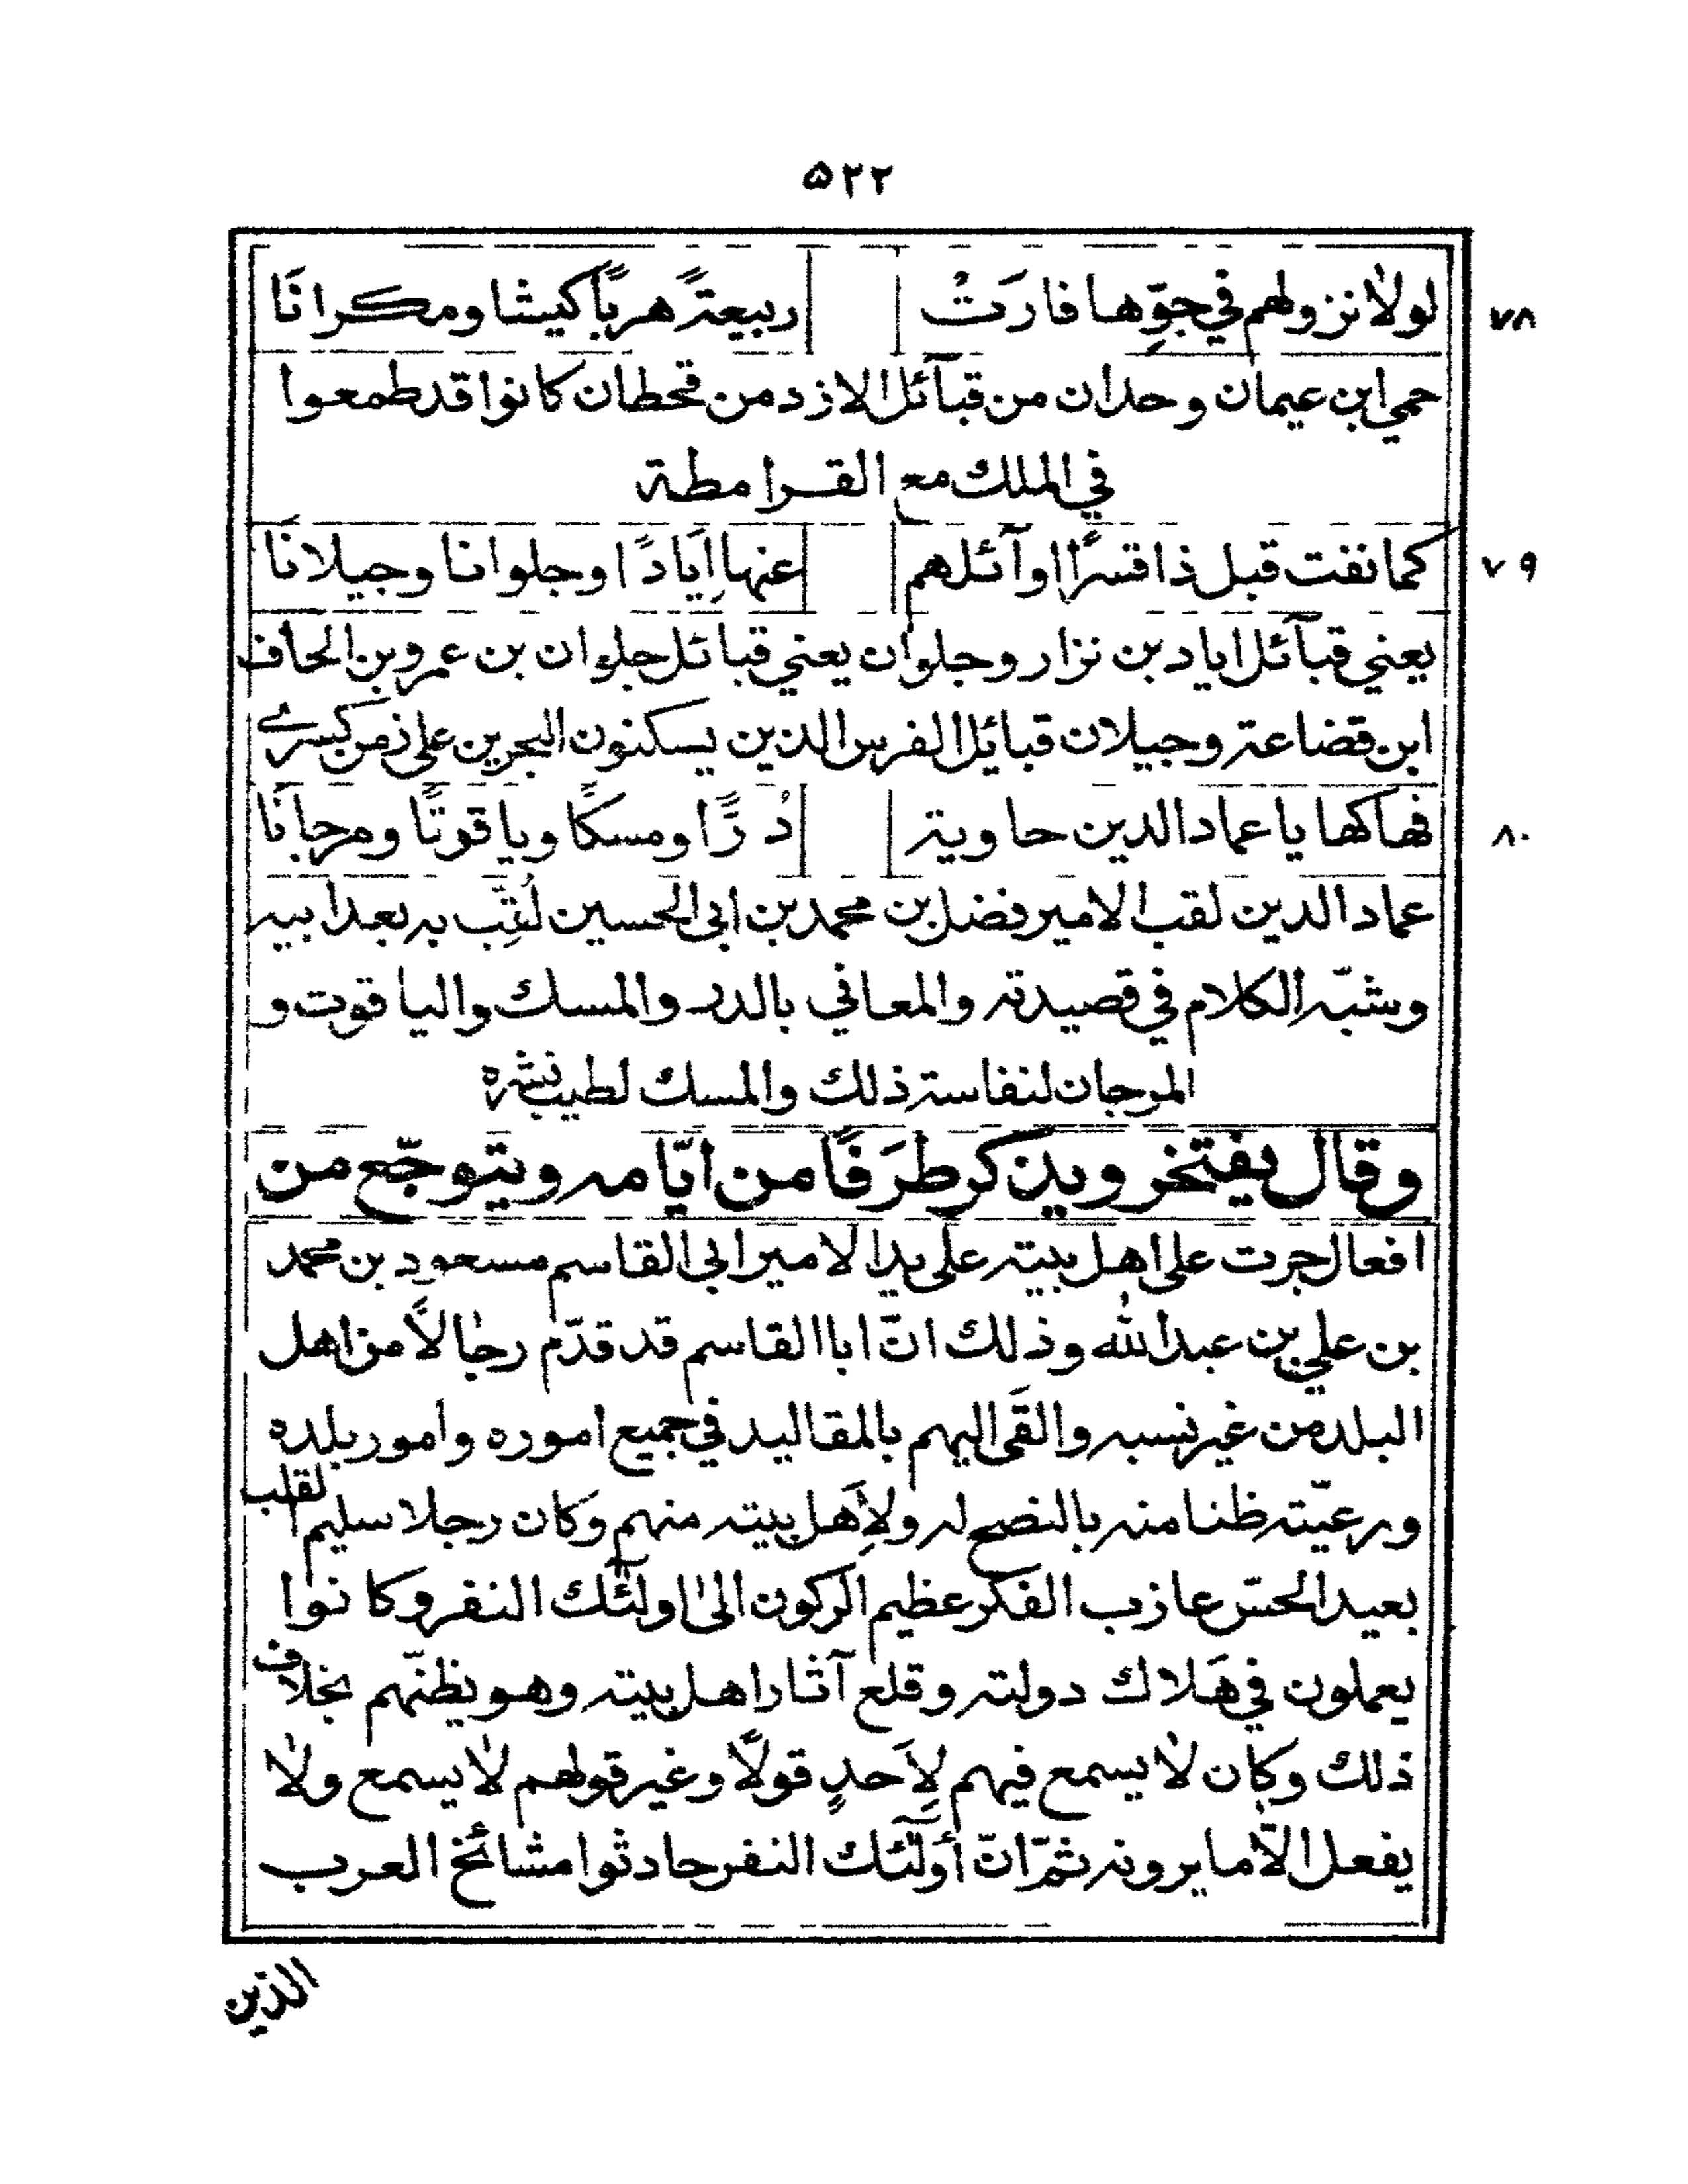 ۵۲۲
٧٨ لولا نزولهم في جوّها فارَتْ ربيعةً هربًا كيشا ومكرانَا
حمي ابن عيمان وحدان من قبآئل الازد من قحطان كانوا قد طمعوا
في الملك مع القرامطة
٧٩ كما نفت قبل ذا قسرًا اوآئلهم عنها اِيَادًا وجلوانا وجيلانَا
يعني قبآئل اياد بن نزار وجلوان يعني قبائل جلوان بن عمرو بن الحاف
ابن قضاعة وجيلان قبايل الفرس الذين يسكنون البحرين على زمن كسرے
٨٠ فهاكها يا عماد الدين حاوية دُرًّا ومسكًا وياقوتًا ومرجانَا
عماد الدين لقب الامير فضل بن محمد بن ابي الحسين لُقِّب به بعد ابيه
وشبّه الكلام في قصيدته والمعاني بالدر والمسك والياقوت و
المرجان لنفاسة ذلك والمسك لطيب نشره
وقال يفتخر ويذكر طرَفًا من ايّامه ويتوجّع من
افعال جرت على اهل بيته على يد الامير ابي القاسم مسعود بن محمد
بن علي بن عبد الله وذلك انّ ابا القاسم قد قدّم رجالاً من اهل
البلد من غير نسبه والقَى اليهم بالمقاليد في جميع اموره وامور بلده
ورعيّته ظنا منه بالنصح له ولاِهل بيته منهم وكان رجلا سليم القلب
بعيد الحسّ عازب الفكر عظيم الركون الى اولئك النفر وكانوا
يعملون في هَلاك دولته وقلع آثار اهل بيته وهو يظنّهم بخلاف
ذلك وكان لا يسمع فيهم لاِحدٍ قولاً وغير قولهم لا يسمع ولا
يفعل الاّ ما يرونه ثمّ انّ أولئك النفر حادثوا مشائخ العرب
الذين